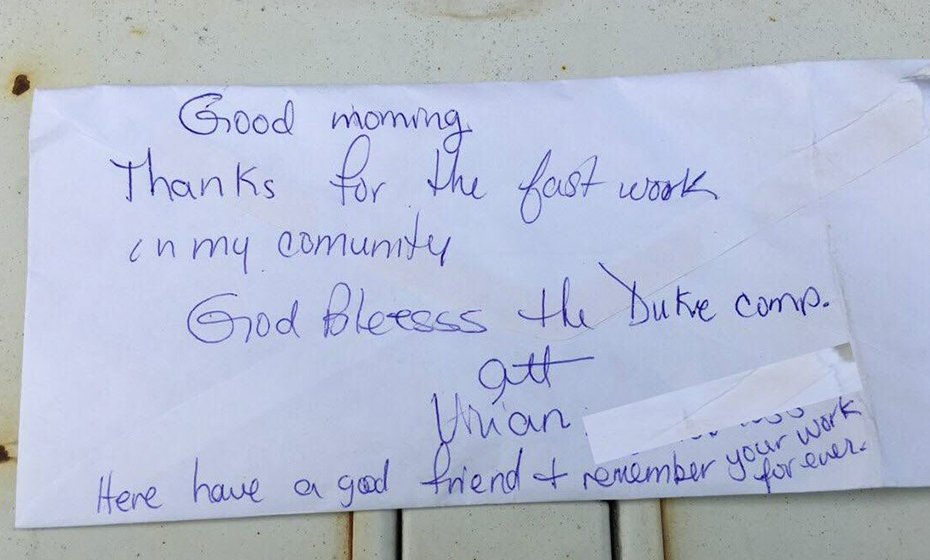 Good morning
Thanks for the fast work
in my comunity
God Bleesss the Duke comp.
att
Here have a good friend + remember your work
for ever.